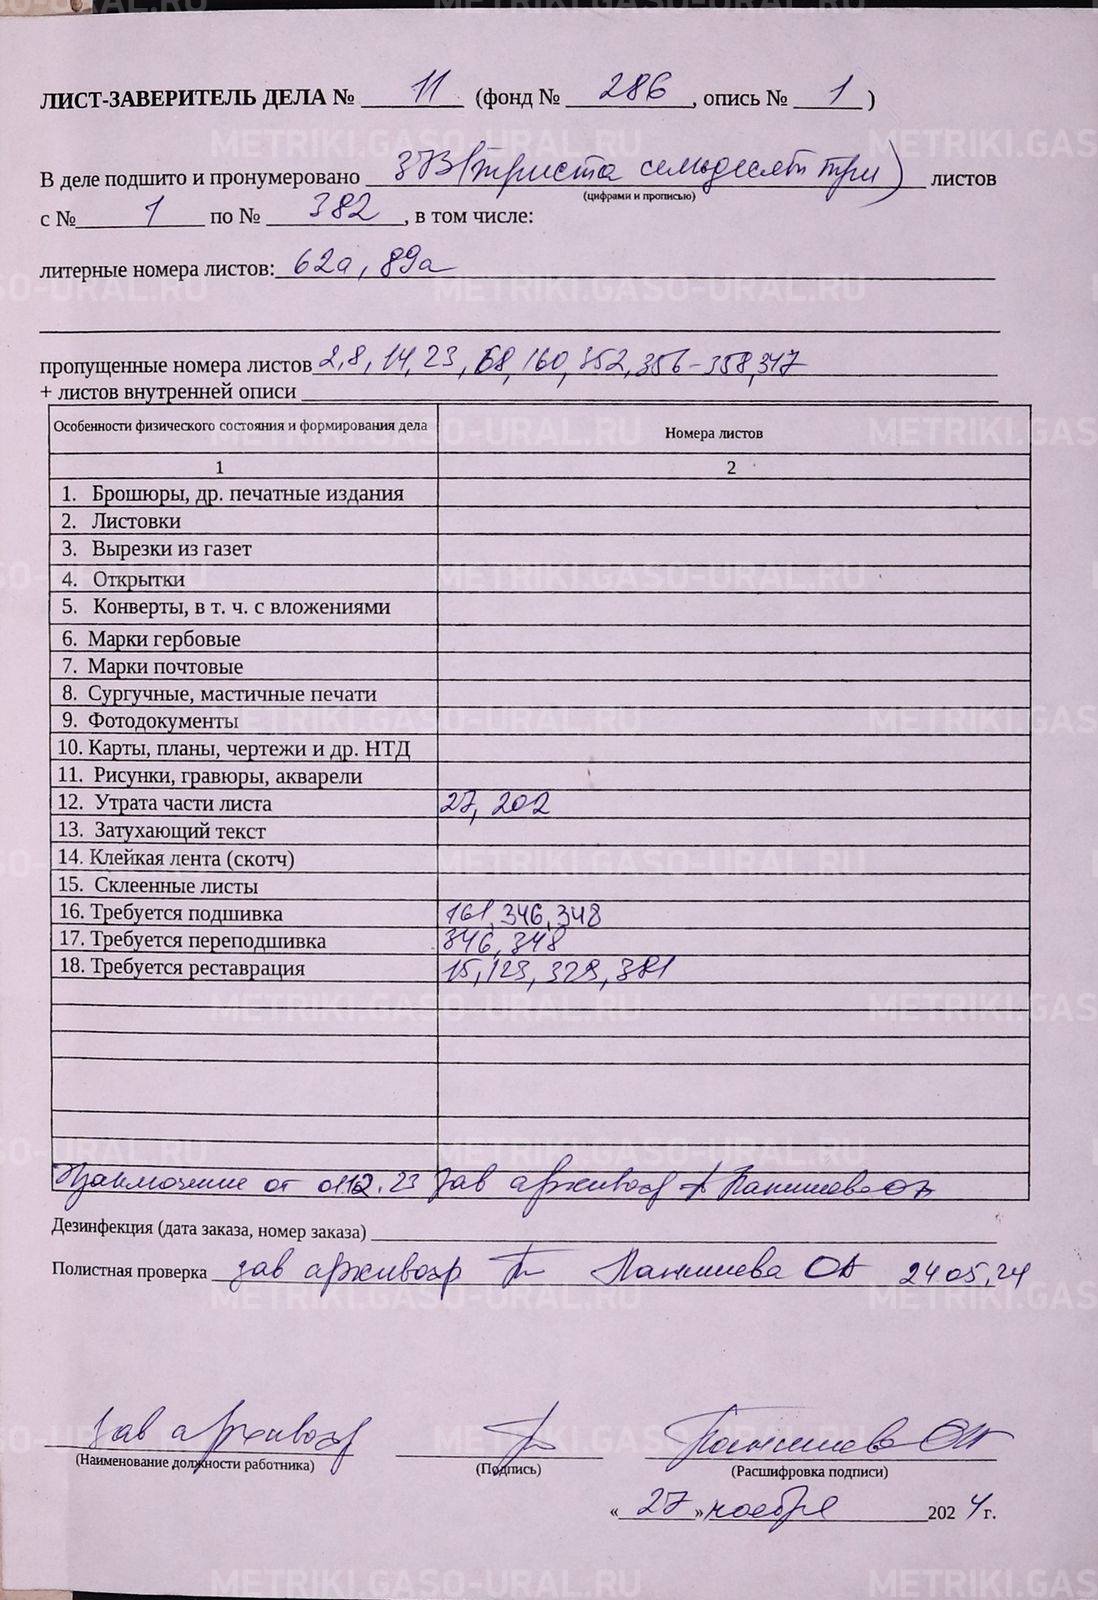 ЛИСТ-ЗАВЕРИТЕЛЬ ДЕЛА № 11 (фонд № 286, опись № 1)
В деле подшито и пронумеровано 373 (триста семьдесят три) листов
(цифрами и прописью)
с № 1 по № 382, в том числе:
литерные номера листов: 62а, 89а
пропущенные номера листов 2,8, 14, 23, 68, 160, 352, 356-358, 317
+ листов внутренней описи
Особенности физического состояния и формирования дела Номера листов
1 2
1. Брошюры, др. печатные издания
2. Листовки
3. Вырезки из газет
4. Открытки
5. Конверты, в т. ч. с вложениями
6. Марки гербовые
7. Марки почтовые
8. Сургучные, мастичные печати
9. Фотодокументы
10. Карты, планы, чертежи и др. НТД
11. Рисунки, гравюры, акварели
12. Утрата части листа 27, 202
13. Затухающий текст
14. Клейкая лента (скотч)
15. Склеенные листы
16. Требуется подшивка 161, 346, 348
17. Требуется переподшивка 346, 348
18. Требуется реставрация 15, 123, 329, 381
от 23 зав архивохр
Дезинфекция (дата заказа, номер заказа)
Полистная проверка зав архивохр ОА 24 05.24
зав архивохр
(Наименование должности работника) (Подпись) (Расшифровка подписи)
« 27 » ноября 2024 г.
METRIKI.GASO-URAL.RU